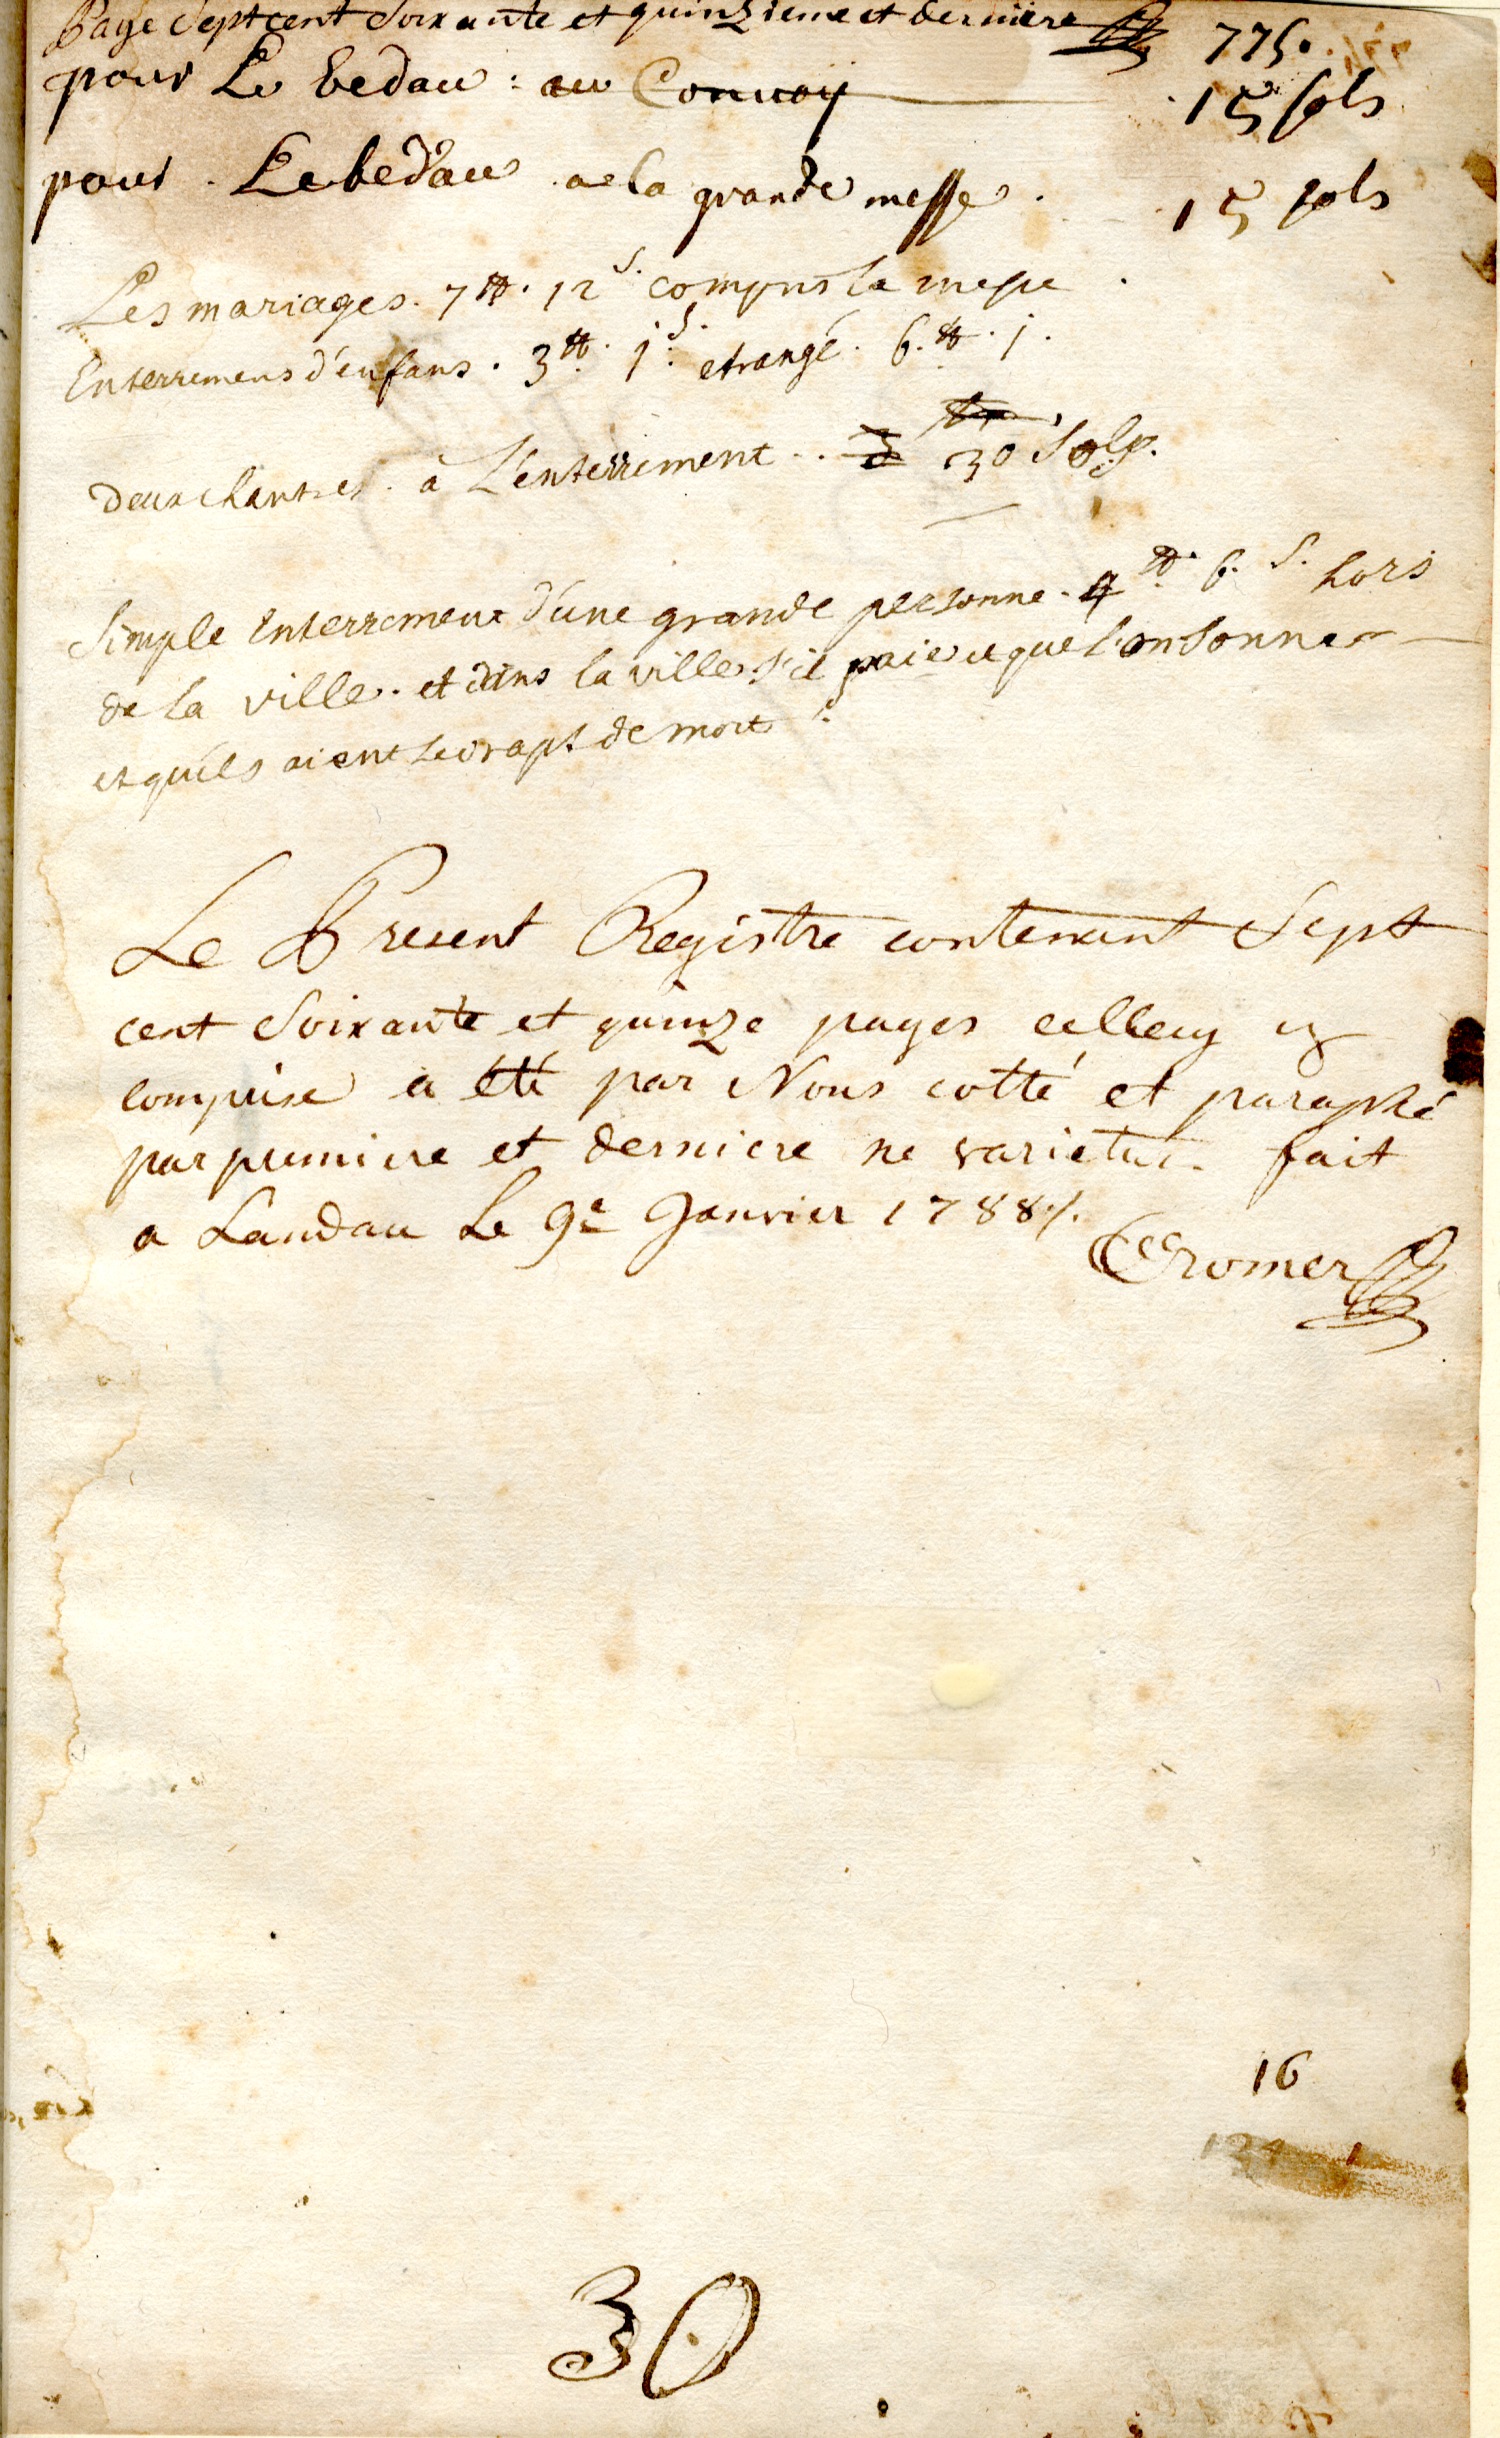 Page Sept cent Soixante et quinzieme et derniere 775.
pour Le bedau : au Convoÿ 15 sols
pour . Le bedau a la grande messe . 15 sols
Les mariages . 7 ₶ . 12 s. compris la messe .
Enterremens d'enfans . 3 ₶ . 1 s. etrangé . 6 . ₶ . 1 .
deux chantres . à L'enterrement . . 30 sols .
Simple Enterrement d'une grande personne . 4 ₶ . 6 . s . hors
de la ville . et dans la ville s'il paie et que l'on sonne
et qu'ils aient le drapt de morts .
Le Present Registre contenant Sept
cent Soixante et quinze pages cellecy y
comprise a été par Nous cotté et paraphé
par premiere et derniere ne varietur . fait
a Landau Le 9e Janvier 1788 ./.
Cromer
16
124 1
30